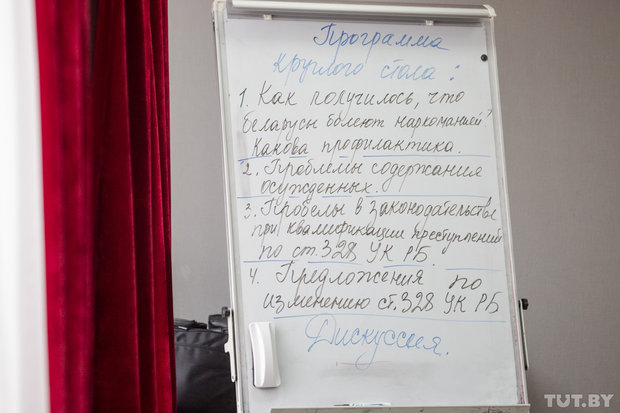 Программа
круглого стола:
1. Как получилось, что
беларусы болеют наркоманией?
Какова профилактика.
2. Проблемы содержания
осужденных.
3. Пробелы в законодательстве
при квалификации преступлений
по ст. 328 УК РБ.
4. Предложения по
изменению ст. 328 УК РБ
Дискуссия.
TUT.BY